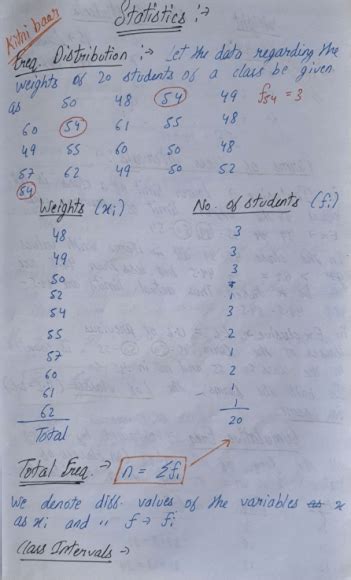 Statistics :→
Kitni baar
Freq. Distribution :→ Let the data regarding the
weights of 20 students of a class be given
as 50 48 54 49 f54 = 3
60 54 61 55 48
49 55 60 50 48
57 62 49 50 52
54
Weights (xi) No. of students (fi)
48 3
49 3
50 3
52 1
54 3
55 2
57 1
60 2
61 1
62 1
Total 20
Total Freq. → n = Σfi
We denote diff. values of the variables as x
as xi and " f → fi
Class Intervals →